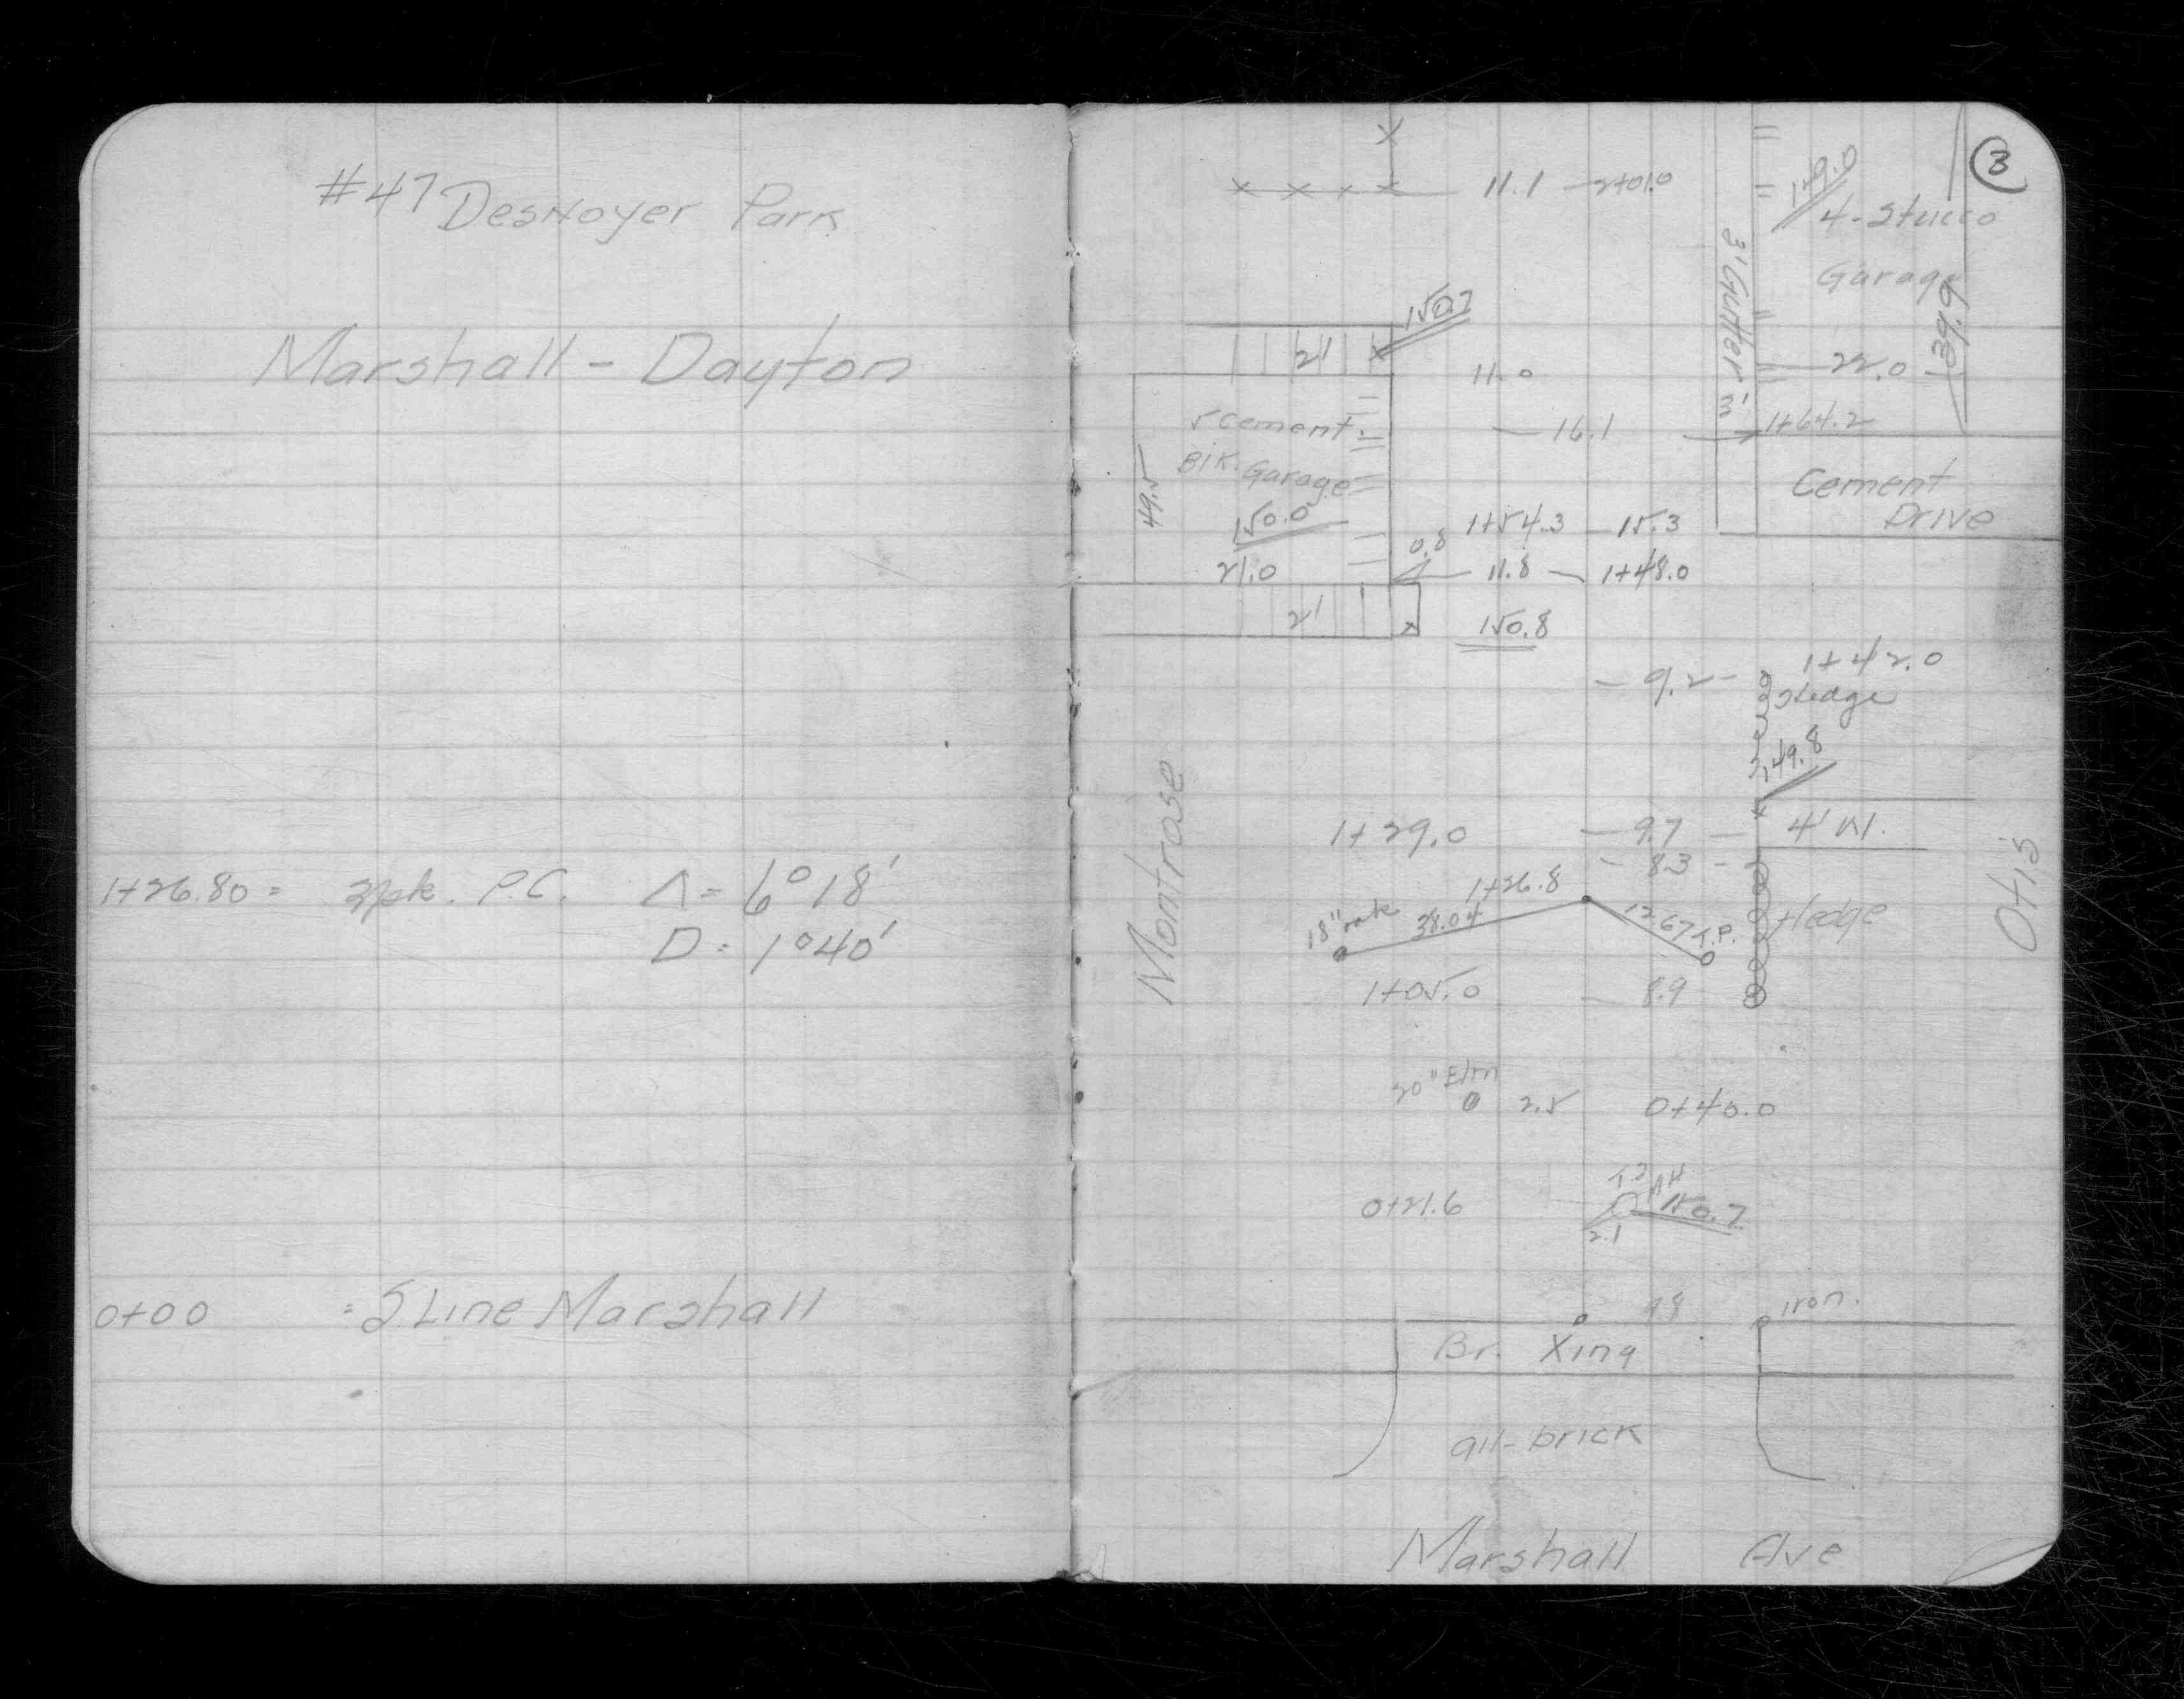 #47 Desnoyer Park
Marshall - Dayton
1+26.80 = Spk. P.C. Δ = 6° 18'
D = 1° 40'
0+00 = S. Line Marshall
3
11.1 2+01.0
149.0
4-Stucco
Garage
39.9
22.0
3' Gutter
3'
150.7
2'
11.0
16.1
1+64.2
5 cement
Blk. Garage
49.5
150.0
21.0
Cement
Drive
1+54.3 15.3
0.8
11.8 1+48.0
2'
150.8
9.2 1+42.0
Hedge
149.8
Montrose
Otis
1+29.0 9.7 4' W.
8.3
1+26.8
18" oak 38.04 12.67 T.P.
Hedge
1+05.0 8.9
20" Elm
2.5 0+40.0
0+21.6
MH
150.7
2.1
9.8 iron.
Br. Xing
all-brick
Marshall Ave